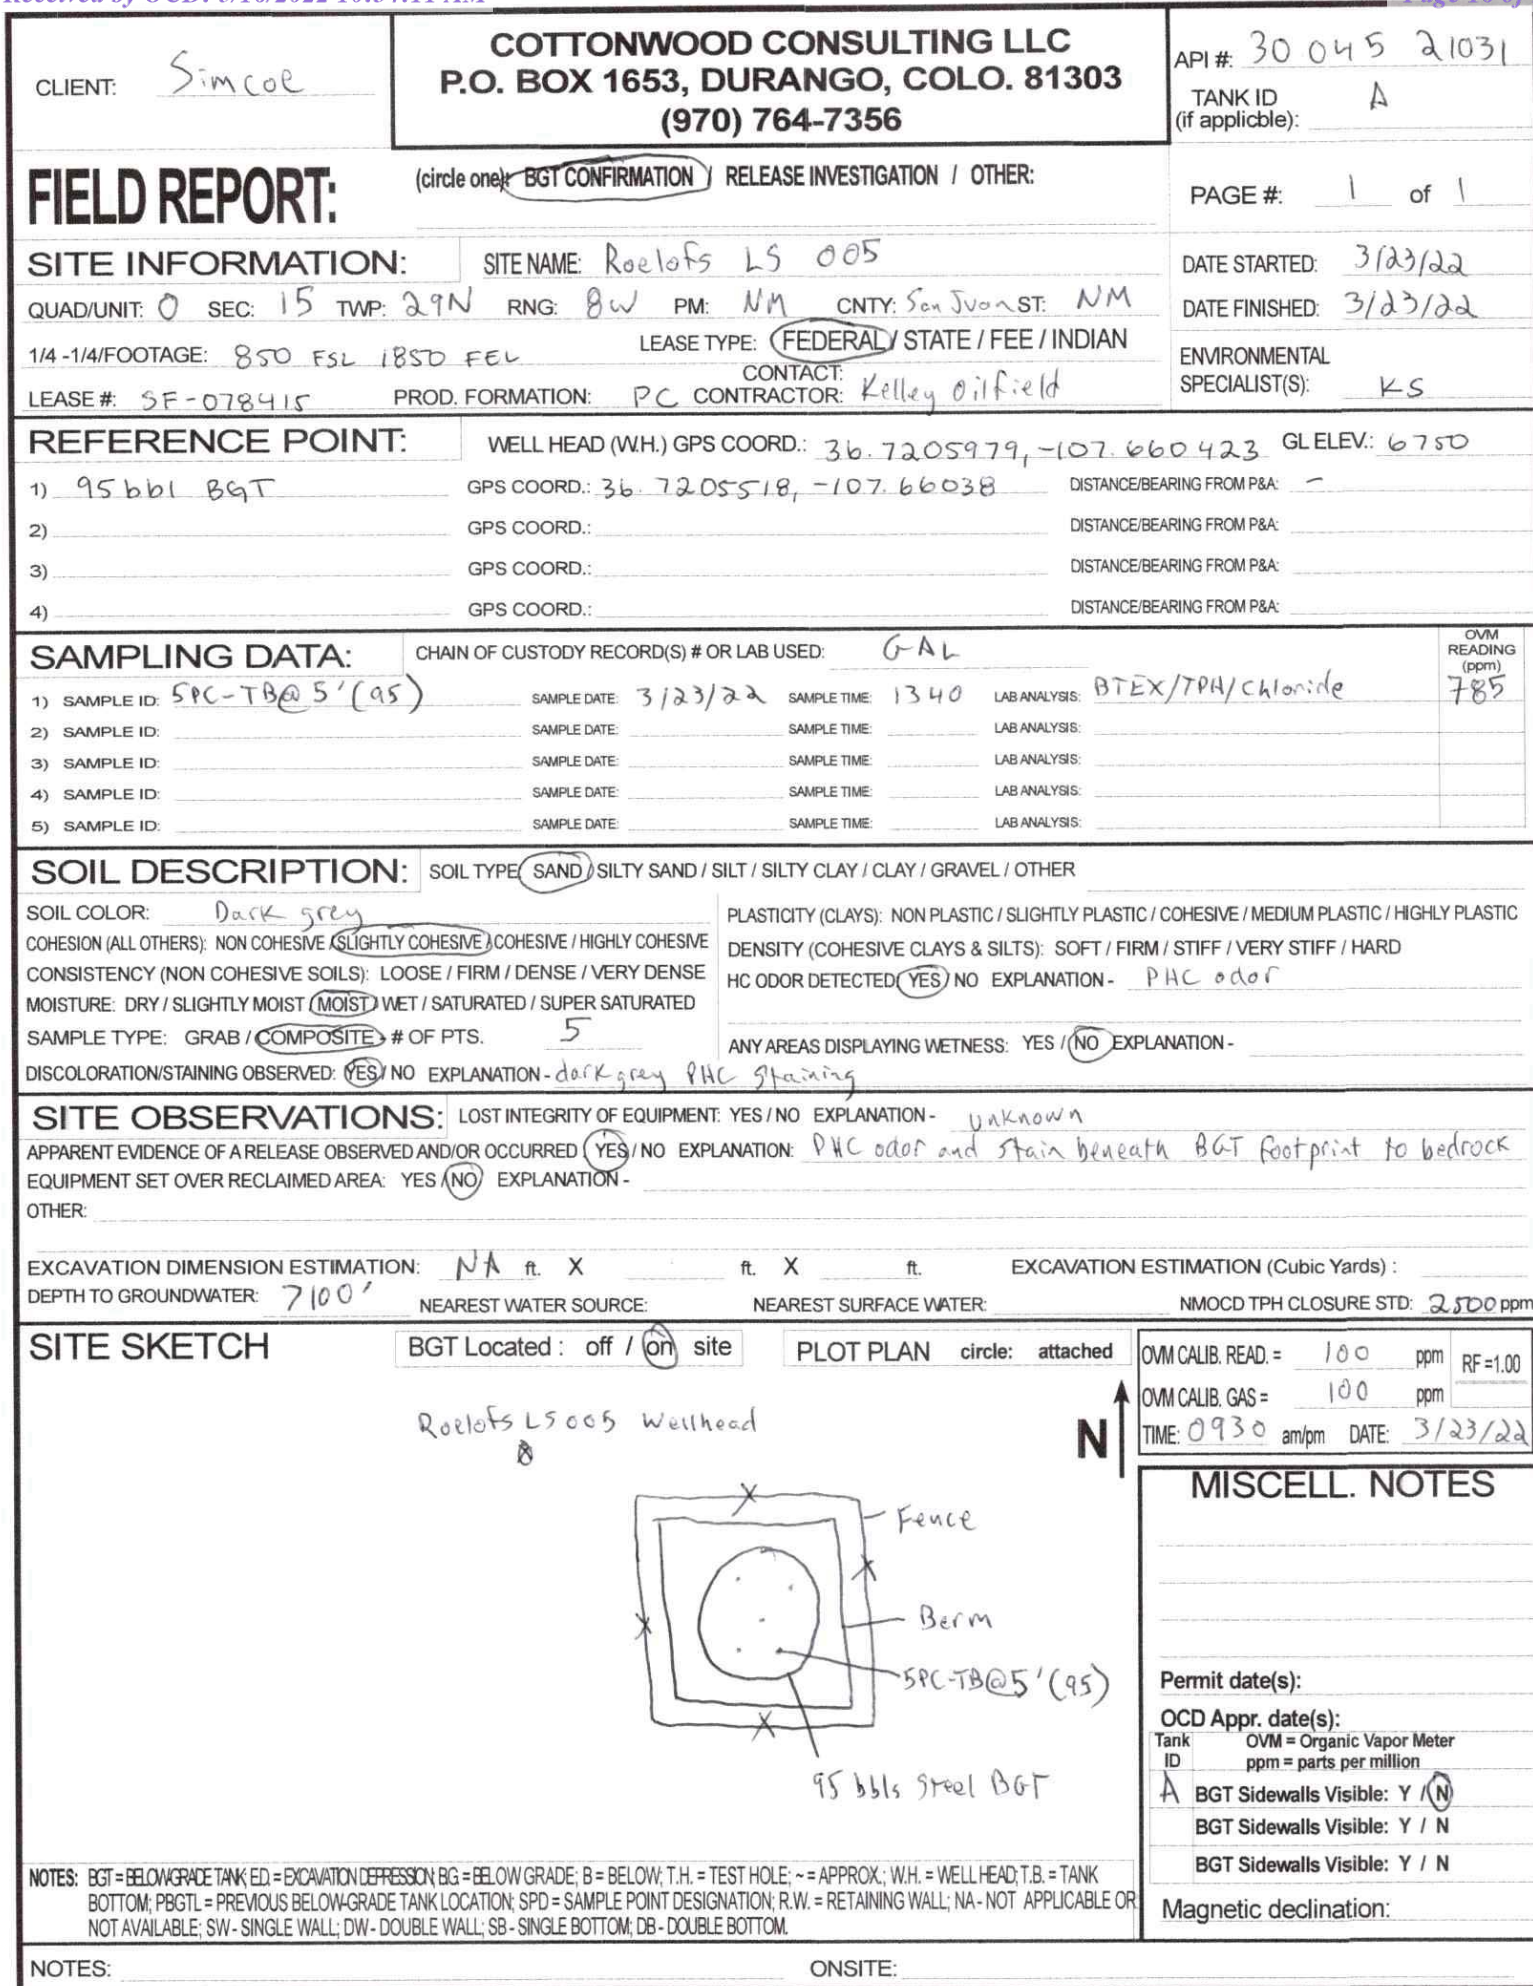 CLIENT: Simcoe
COTTONWOOD CONSULTING LLC
P.O. BOX 1653, DURANGO, COLO. 81303
(970) 764-7356
API #: 30 045 21031
TANK ID
(if applicble): A
FIELD REPORT:
(circle one): BGT CONFIRMATION / RELEASE INVESTIGATION / OTHER:
PAGE #: 1 of 1
SITE INFORMATION: SITE NAME: Roelofs LS 005
DATE STARTED: 3/23/22
QUAD/UNIT: O SEC: 15 TWP: 29N RNG: 8W PM: NM CNTY: San Juan ST: NM
DATE FINISHED: 3/23/22
1/4 -1/4/FOOTAGE: 850 FSL 1850 FEL LEASE TYPE: FEDERAL / STATE / FEE / INDIAN
LEASE #: SF-078415 PROD. FORMATION: PC CONTACT: CONTRACTOR: Kelley Oilfield
ENVIRONMENTAL
SPECIALIST(S): KS
REFERENCE POINT: WELL HEAD (W.H.) GPS COORD.: 36.7205979, -107.660423 GL ELEV.: 6750
1) 95 bbl BGT GPS COORD.: 36.7205518, -107.66038 DISTANCE/BEARING FROM P&A: -
2) GPS COORD.: DISTANCE/BEARING FROM P&A:
3) GPS COORD.: DISTANCE/BEARING FROM P&A:
4) GPS COORD.: DISTANCE/BEARING FROM P&A:
SAMPLING DATA: CHAIN OF CUSTODY RECORD(S) # OR LAB USED: GAL
OVM
READING
(ppm)
1) SAMPLE ID: 5PC-TB@5'(95) SAMPLE DATE: 3/23/22 SAMPLE TIME: 1340 LAB ANALYSIS: BTEX/TPH/Chloride 785
2) SAMPLE ID: SAMPLE DATE: SAMPLE TIME: LAB ANALYSIS:
3) SAMPLE ID: SAMPLE DATE: SAMPLE TIME: LAB ANALYSIS:
4) SAMPLE ID: SAMPLE DATE: SAMPLE TIME: LAB ANALYSIS:
5) SAMPLE ID: SAMPLE DATE: SAMPLE TIME: LAB ANALYSIS:
SOIL DESCRIPTION: SOIL TYPE: SAND / SILTY SAND / SILT / SILTY CLAY / CLAY / GRAVEL / OTHER
SOIL COLOR: Dark grey
COHESION (ALL OTHERS): NON COHESIVE / SLIGHTLY COHESIVE / COHESIVE / HIGHLY COHESIVE
CONSISTENCY (NON COHESIVE SOILS): LOOSE / FIRM / DENSE / VERY DENSE
MOISTURE: DRY / SLIGHTLY MOIST / MOIST / WET / SATURATED / SUPER SATURATED
SAMPLE TYPE: GRAB / COMPOSITE - # OF PTS. 5
DISCOLORATION/STAINING OBSERVED: YES / NO EXPLANATION - dark grey PHC staining
PLASTICITY (CLAYS): NON PLASTIC / SLIGHTLY PLASTIC / COHESIVE / MEDIUM PLASTIC / HIGHLY PLASTIC
DENSITY (COHESIVE CLAYS & SILTS): SOFT / FIRM / STIFF / VERY STIFF / HARD
HC ODOR DETECTED: YES / NO EXPLANATION - PHC odor
ANY AREAS DISPLAYING WETNESS: YES / NO EXPLANATION -
SITE OBSERVATIONS: LOST INTEGRITY OF EQUIPMENT: YES / NO EXPLANATION - unknown
APPARENT EVIDENCE OF A RELEASE OBSERVED AND/OR OCCURRED: YES / NO EXPLANATION: PHC odor and stain beneath BGT footprint to bedrock
EQUIPMENT SET OVER RECLAIMED AREA: YES / NO EXPLANATION -
OTHER:
EXCAVATION DIMENSION ESTIMATION: NA ft. X ft. X ft. EXCAVATION ESTIMATION (Cubic Yards) :
DEPTH TO GROUNDWATER: >100' NEAREST WATER SOURCE: NEAREST SURFACE WATER: NMOCD TPH CLOSURE STD: 2500 ppm
SITE SKETCH BGT Located : off / on site PLOT PLAN circle: attached
OVM CALIB. READ. = 100 ppm RF =1.00
OVM CALIB. GAS = 100 ppm
TIME: 0930 am/pm DATE: 3/23/22
Roelofs LS 005 Wellhead
N
Fence
Berm
5PC-TB@5'(95)
95 bbls Steel BGT
MISCELL. NOTES
Permit date(s):
OCD Appr. date(s):
Tank ID OVM = Organic Vapor Meter
ppm = parts per million
A BGT Sidewalls Visible: Y / N
BGT Sidewalls Visible: Y / N
BGT Sidewalls Visible: Y / N
Magnetic declination:
NOTES: BGT = BELOW-GRADE TANK; E.D. = EXCAVATION DEPRESSION; BG = BELOW GRADE; B = BELOW; T.H. = TEST HOLE; ~ = APPROX.; W.H. = WELL HEAD; T.B. = TANK
BOTTOM; PBGTL = PREVIOUS BELOW-GRADE TANK LOCATION; SPD = SAMPLE POINT DESIGNATION; R.W. = RETAINING WALL; NA - NOT APPLICABLE OR
NOT AVAILABLE; SW - SINGLE WALL; DW - DOUBLE WALL; SB - SINGLE BOTTOM; DB - DOUBLE BOTTOM.
NOTES: ONSITE: